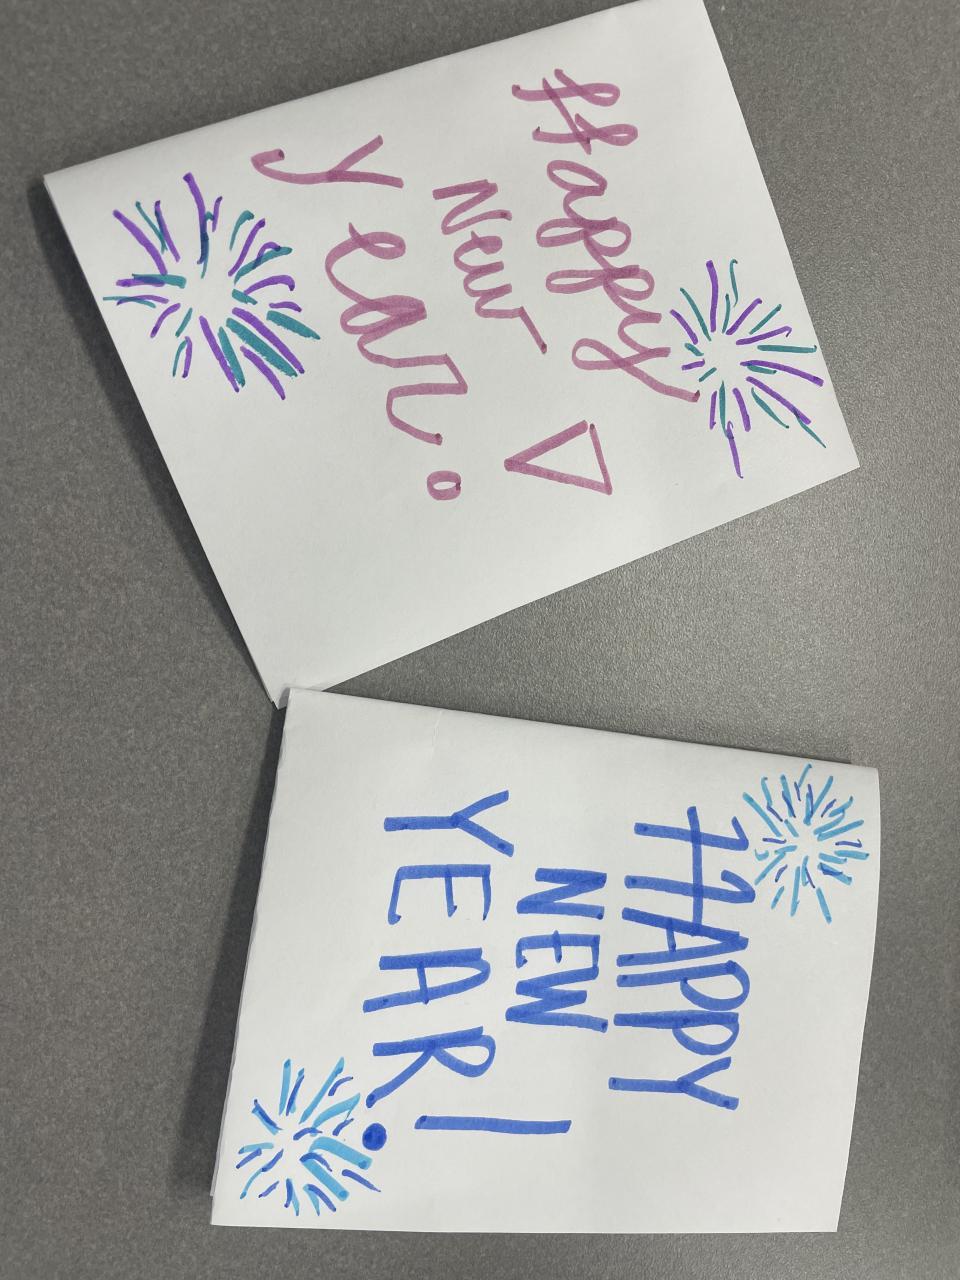 Happy
New
Year!
HAPPY
NEW
YEAR!